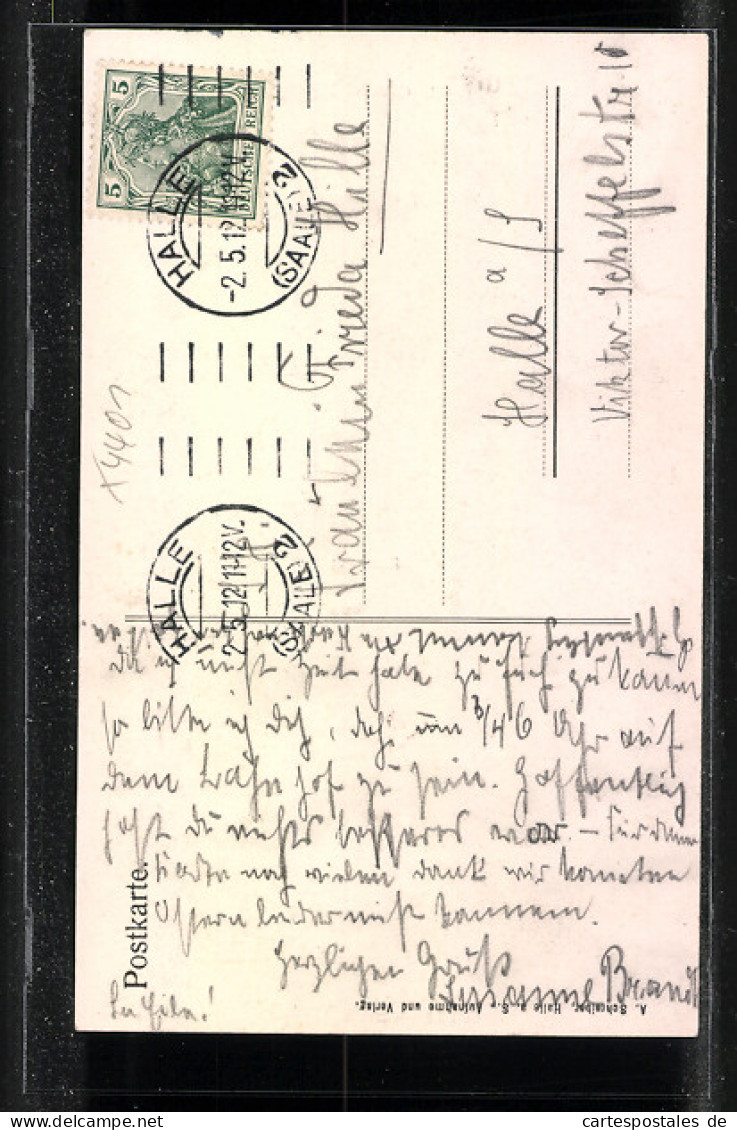 Postkarte.
5 5
DEUTSCHES REICH
HALLE
-2.5.12.11-12V.
(SAALE) 2
HALLE
-2.5.12.11-12V.
(SAALE) 2
Fräulein Frieda Hille
Halle a/S
Viktor-Scheffelstr. 10
X4401
Da ich nicht Zeit habe zu Euch zu kommen
so bitte ich Dich, doch um 3/4 6 Uhr auf
dem Bahnhof zu sein. Hoffentlich
hast Du nichts besseres vor. – Für deine
Karte noch vielen Dank wir konnten
Ostern leider nicht kommen.
Herzlichen Gruß
Susanne Brandt
A. Schreiber, Halle a. S., Aufnahme und Verlag.
cartespostales de